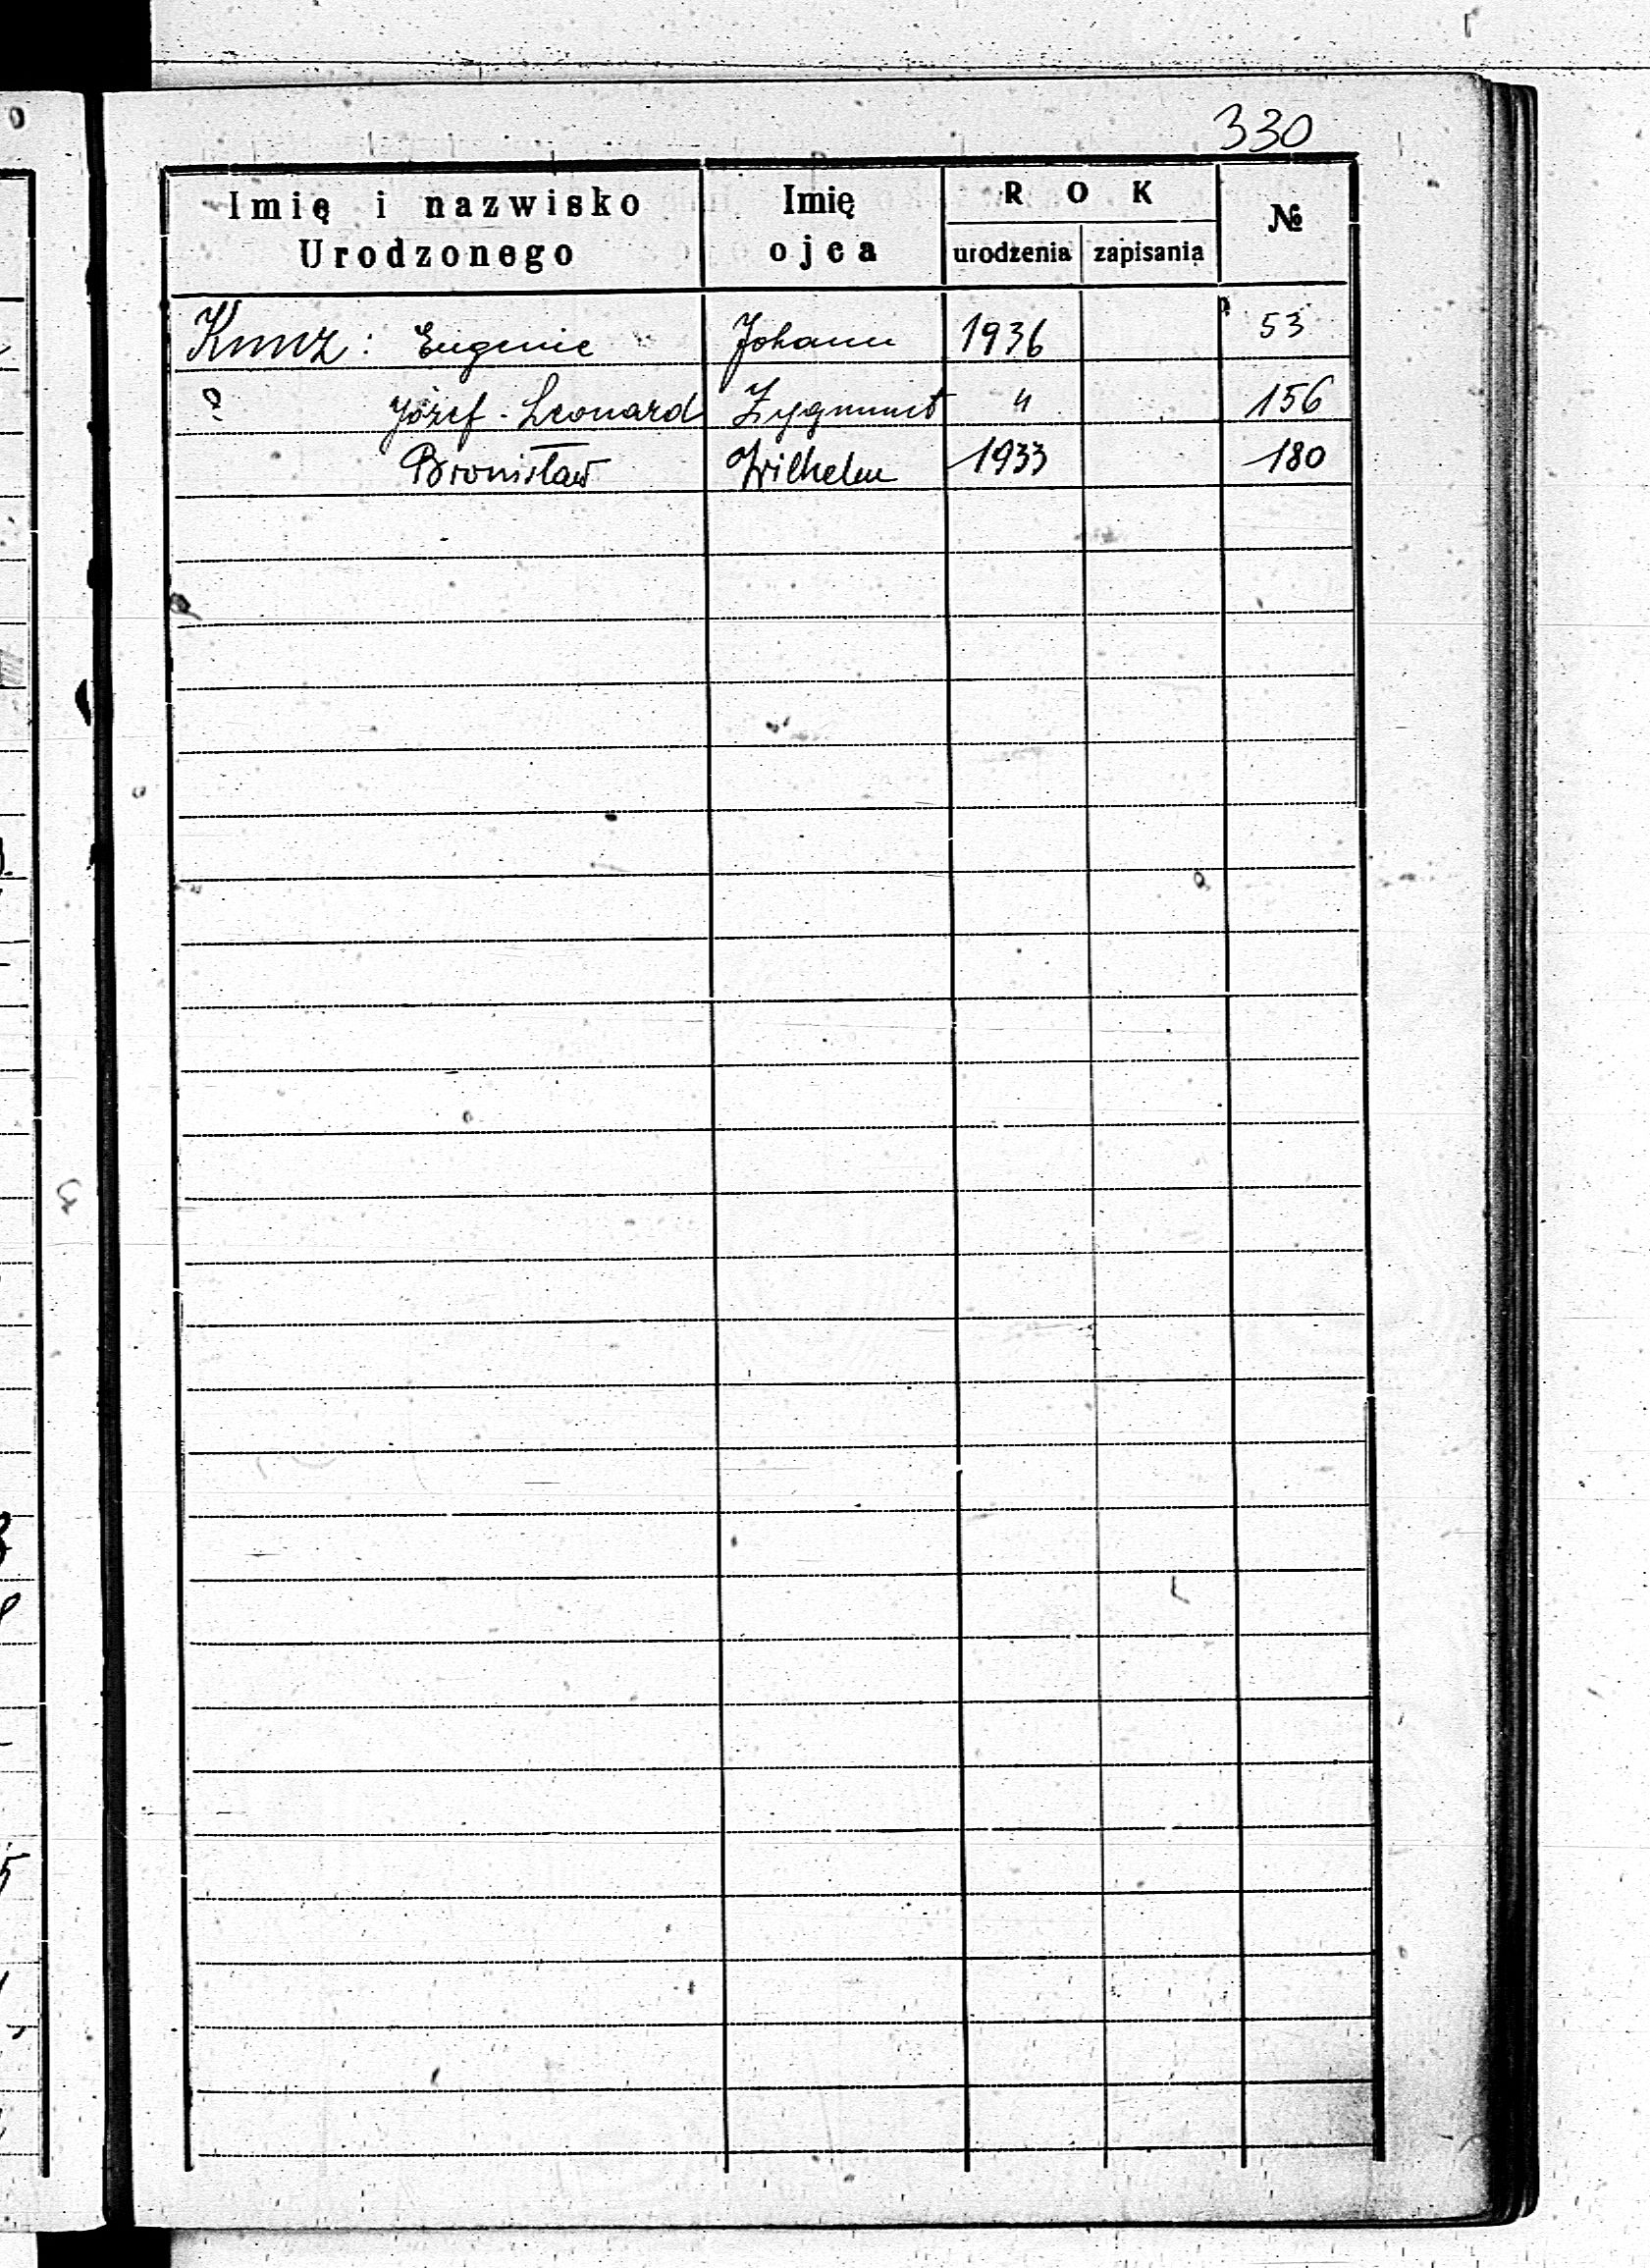 330
Imię i nazwisko Urodzonego Imię ojca ROK urodzenia zapisania №
Kunz: Eugenie Johann 1936 53
? Józef-Leonard Zygmunt " 156
Bronisław Wilhelm 1933 180